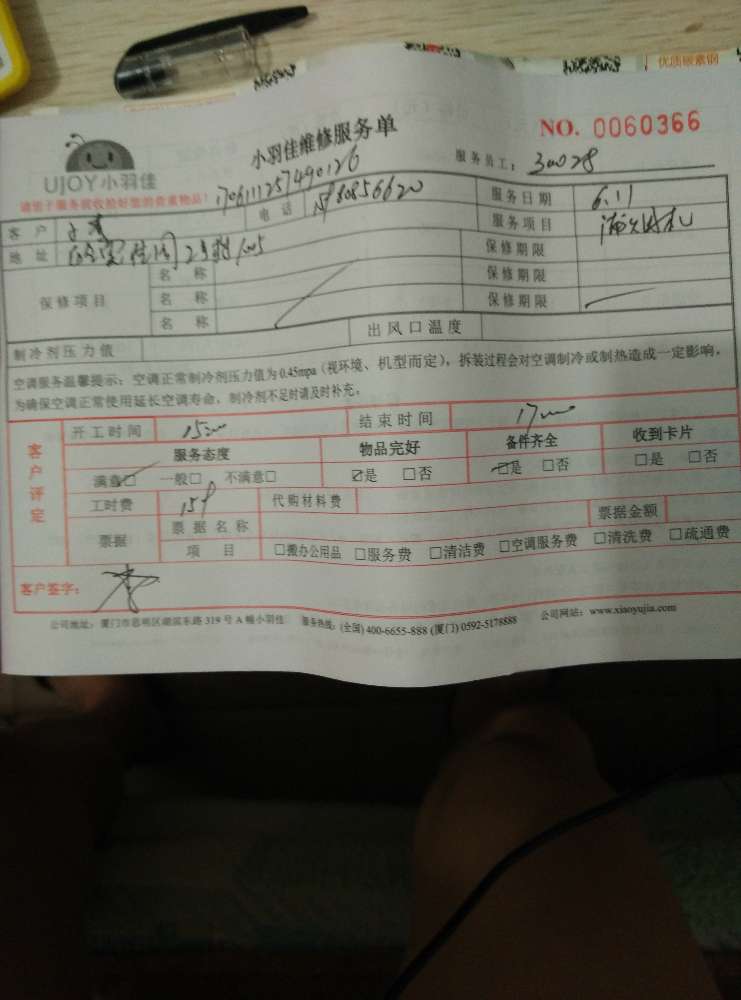 优质碳素钢
NO. 0060366
小羽佳维修服务单
UJOY小羽佳
服务员工:
请您于服务前收拾好您的贵重物品!170611257490126
客户 电话 服务日期 6.11
地址 服务项目
保修项目 名称 保修期限
名称 保修期限
名称 保修期限
制冷剂压力值 出风口温度
空调服务温馨提示:空调正常制冷剂压力值为0.45mpa(视环境、机型而定),拆装过程会对空调制冷或制热造成一定影响,
为确保空调正常使用延长空调寿命,制冷剂不足时请及时补充。
客户评定
开工时间 结束时间
服务态度 物品完好 备件齐全 收到卡片
满意□ 一般□ 不满意□ ☑是 □否 ☑是 □否 □是 □否
工时费 代购材料费
票据 票据名称 票据金额
项目 □搬办公用品 □服务费 □清洁费 □空调服务费 □清洗费 □疏通费
客户签字:
公司地址:厦门市思明区湖滨东路319号A幢小羽佳 服务热线:(全国)400-6655-888 (厦门)0592-5178888 公司网站:www.xiaoyujia.com